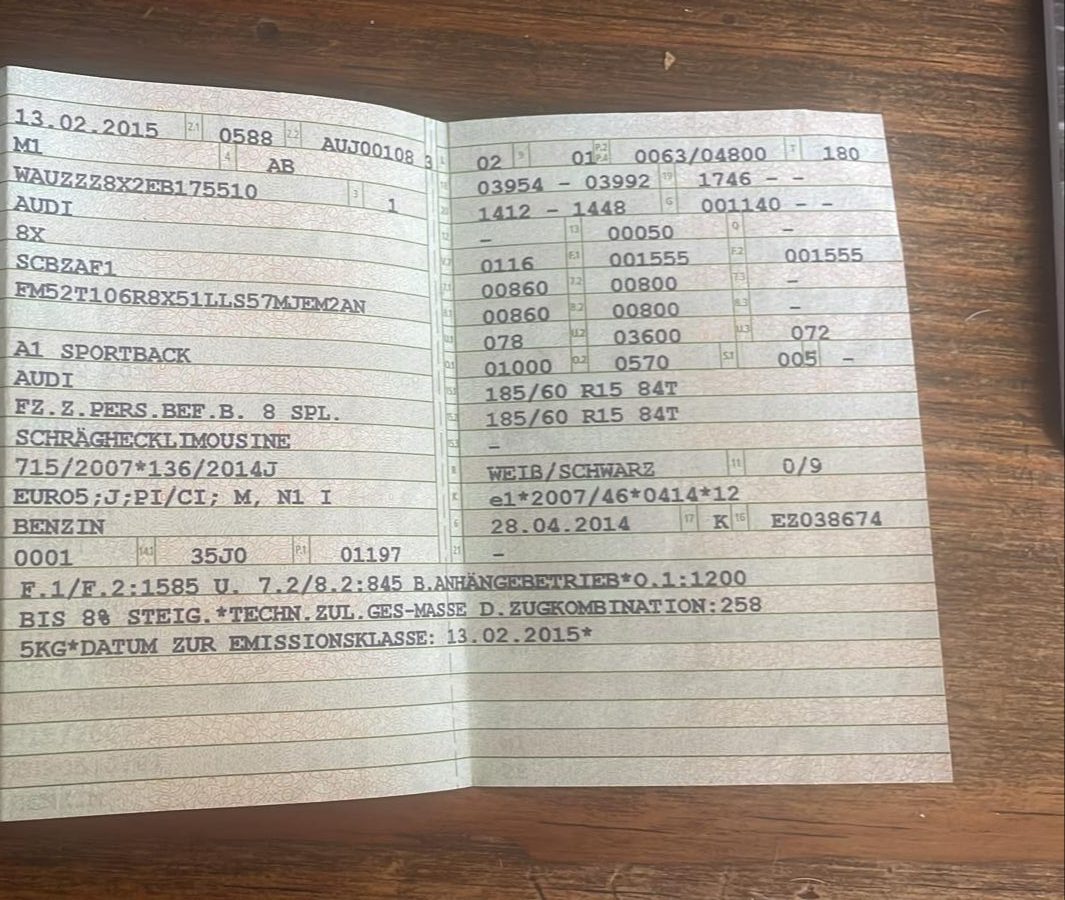 13.02.2015 2.1 0588 2.2 AUJ00108 3
M1 4 AB
WAUZZZ8X2EB175510 3 1
AUDI
8X
SCBZAF1
FM52T106R8X51LLS57MJEM2AN
A1 SPORTBACK
AUDI
FZ.Z.PERS.BEF.B. 8 SPL.
SCHRÄGHECKLIMOUSINE
715/2007*136/2014J
EURO5;J;PI/CI; M, N1 I
BENZIN
0001 14.1 35J0 P.1 01197
L 02 9 01 P.2 P.4 0063/04800 T 180
18 03954 - 03992 19 1746 - -
20 1412 - 1448 G 001140 - -
12 - 13 00050 Q -
V.7 0116 F.1 001555 F.2 001555
7.1 00860 7.2 00800 7.3 -
8.1 00860 8.2 00800 8.3 -
U.1 078 U.2 03600 U.3 072
O.1 01000 O.2 0570 S.1 005 -
15.1 185/60 R15 84T
15.2 185/60 R15 84T
15.3 -
R WEIß/SCHWARZ 11 0/9
K e1*2007/46*0414*12
6 28.04.2014 17 K 16 EZ038674
21 -
F.1/F.2:1585 U. 7.2/8.2:845 B.ANHÄNGEBETRIEB*O.1:1200
BIS 8% STEIG.*TECHN.ZUL.GES-MASSE D.ZUGKOMBINATION:258
5KG*DATUM ZUR EMISSIONSKLASSE: 13.02.2015*